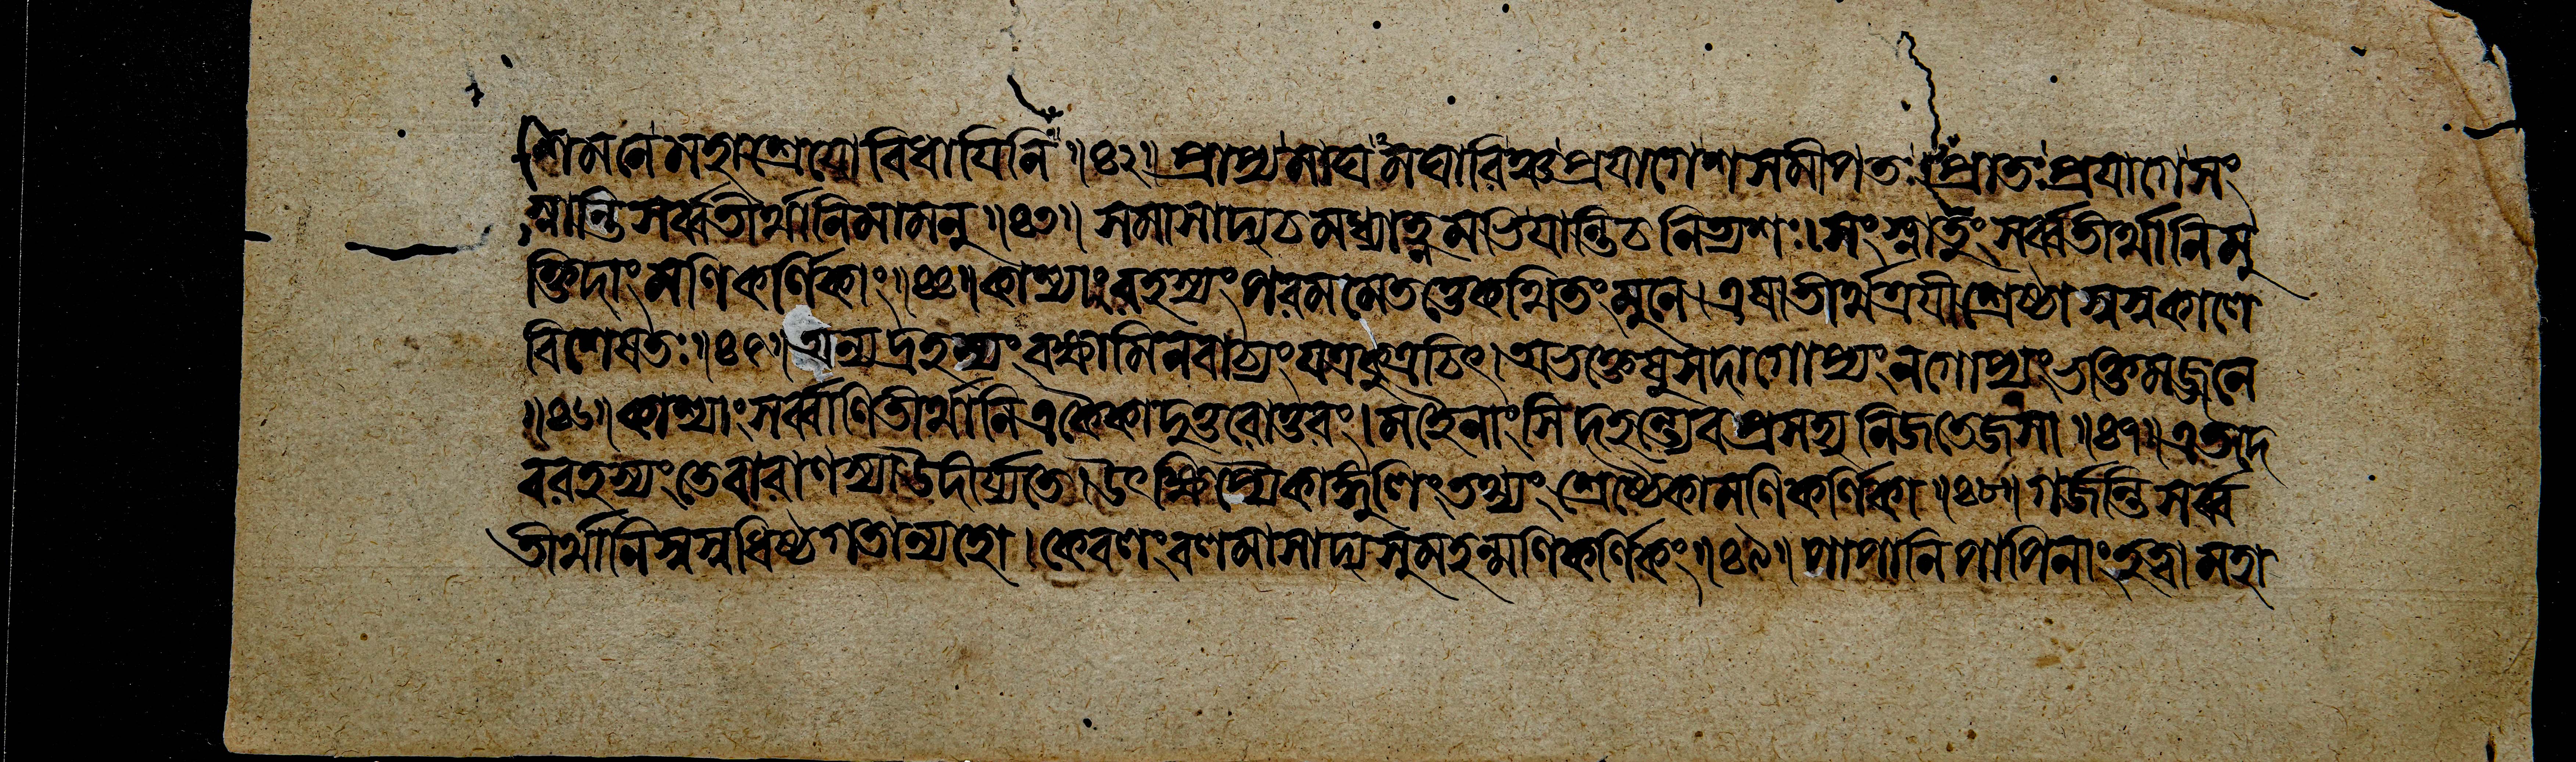 শমনে মহাশ্রেয়োবিধায়িনি ॥৪২॥ প্রাপ্যমাঘমঘারিঞ্চপ্রয়াগেশসমীপতঃ। প্রাতঃপ্রয়াগেসং
স্নান্তিসর্ব্বতীর্থানিমামনু ॥৪৩॥ সমাসাদ্যচমধ্যাহ্নমভিযান্তিচনিত্যশঃ। সংস্নাতুংসর্ব্বতীর্থানিমু
ক্তিদাংমণিকর্ণিকাং ॥৪৪॥ কাশ্যাংরহস্যংপরমমেতত্তেকথিতংমুনে। এষাতীর্থত্রয়ীশ্রেষ্ঠাস্বস্বকালে
বিশেষতঃ ॥৪৫॥ অন্যদ্রহস্যংবক্ষ্যামিনবাচ্যংযত্রকুত্রচিৎ। অভক্তেষুসদাগোপ্যংনগোপ্যংভক্তিমজ্জনে
॥৪৬॥ কাশ্যাংসর্ব্বাণিতীর্থানিএকৈকাদুত্তরোত্তরং। মহৈনাংসিদহন্ত্যেবপ্রসহ্যনিজতেজসা ॥৪৭॥ এতদে
বরহস্যংতেবারাণস্যাউদীর্য্যতে। উৎক্ষিপ্যৈকাঙ্গুলিংতথ্যংশ্রেষ্ঠৈকামণিকর্ণিকা ॥৪৮॥ গর্জন্তিসর্ব্ব
তীর্থানিস্বস্বধিষ্ঠগতান্যহো। কেবলংবলমাসাদ্যসুমহন্মণিকর্ণিকং ॥৪৯॥ পাপানিপাপিনাংহৃত্বামহা